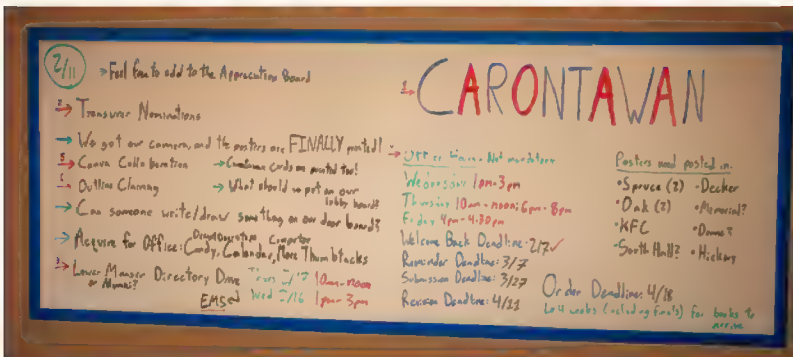 2/11
→ Feel free to add to the Appreciation Board
→ Treasurer Nominations
→ We got our camera, and the posters are FINALLY printed!
5 → Canva Collaboration
→ cards are printed too!
→ Outline Claiming
→ What should we put on our
lobby board?
→ Can someone write/draw something on our door board?
→ Acquire for Office: Candy, Calendar, More Thumbtacks
Computer
3 → Lower Manser Directory Drive
or Alumni?
Thurs 10am-noon
EMSed Wed 2/16 1pm-3pm
1 → CARONTAWAN
Office Hours - Not mandatory
Wednesday 1pm-3pm
Thursday 10am-noon; 6pm-8pm
Friday 4pm-4:30pm
Welcome Back Deadline: 2/7 ✓
Reminder Deadline: 3/7
Submission Deadline: 3/27
Revision Deadline: 4/11
Posters need posted in:
• Spruce (2)
• Oak (2)
• KFC
• South Hall?
• Decker
• Memorial?
• Hickory
Order Deadline: 4/18
4 weeks (including finals) for books to
arrive